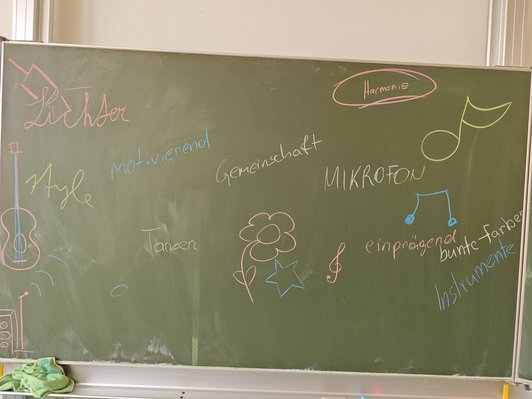 Lichter
Harmonie
motivierend
Gemeinschaft
MIKROFON
Style
Tanzen
einprägend
bunte-farben
Instrumente